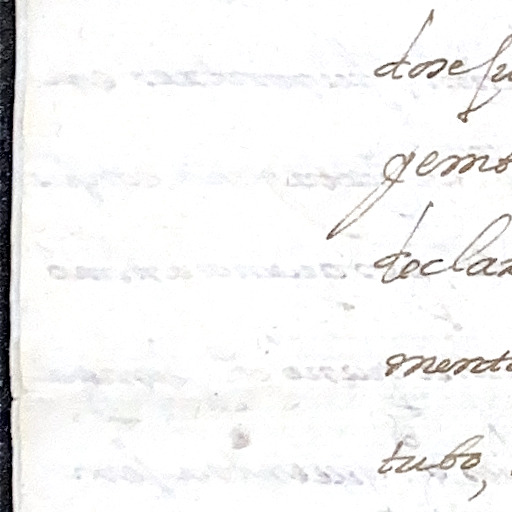 dose fu
gemo
declar
mento
tubo,